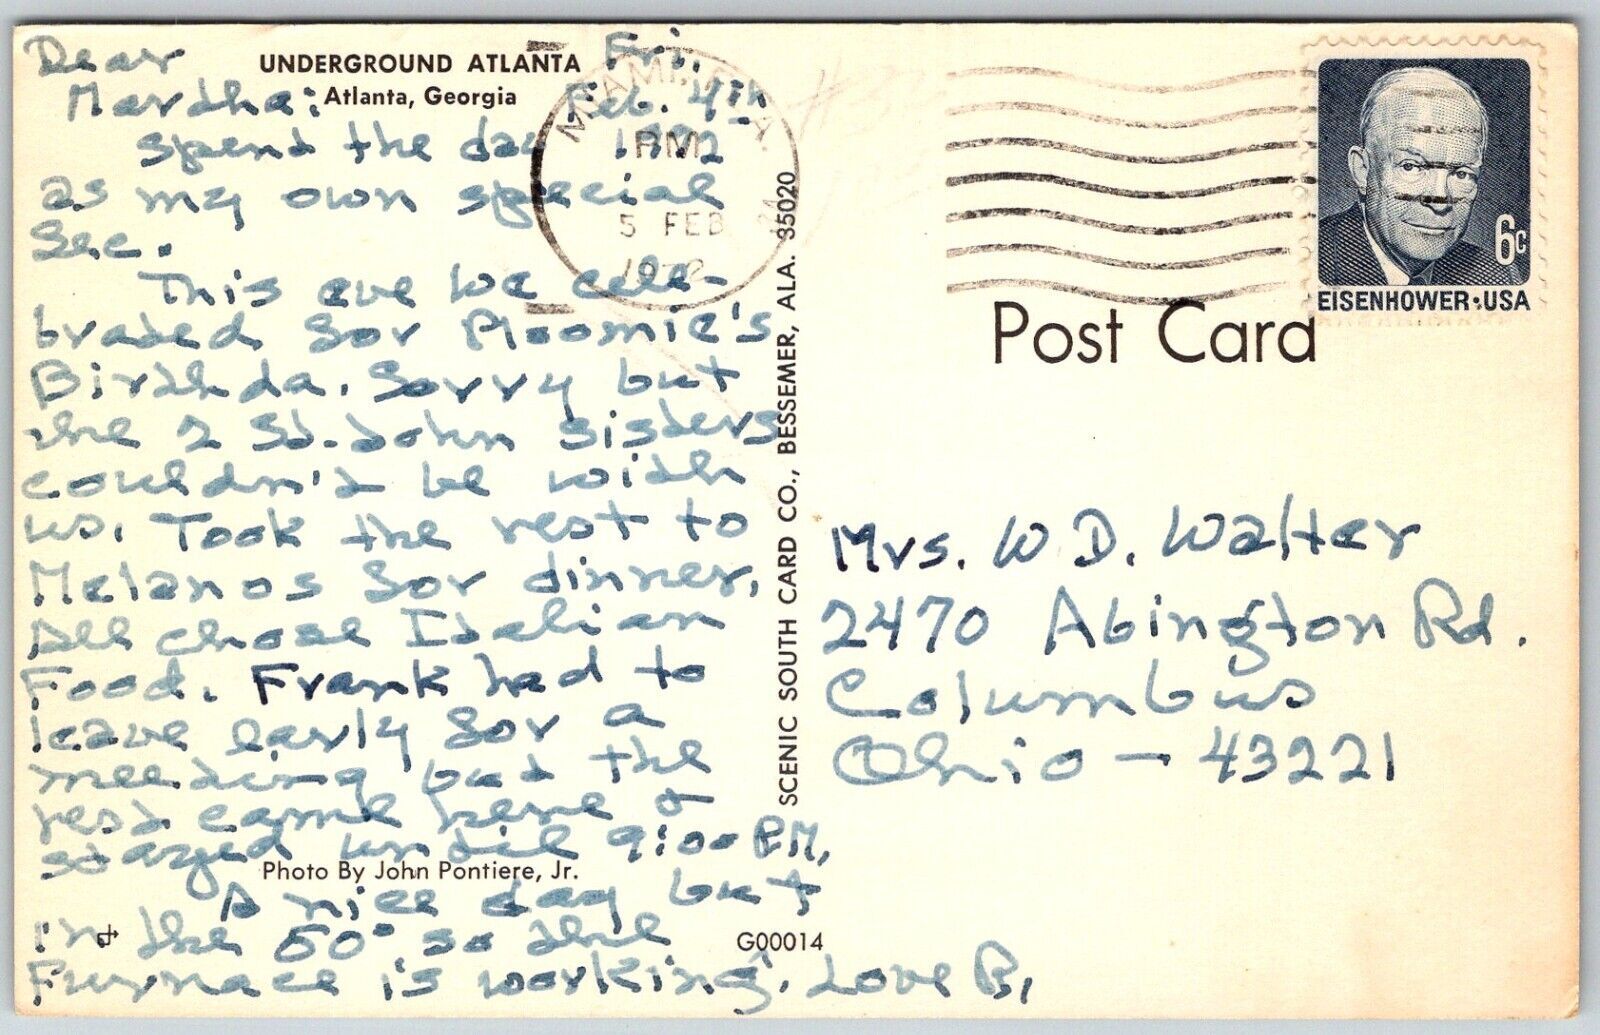 UNDERGROUND ATLANTA
Atlanta, Georgia
Dear Fri.
Mardha: Feb. 4th
spend the day 1972
as my own special
Sec.
This eve we cele-
braded for Ploomie's
Birthda. Sorry but
the 2 St. John sisters
couldn't be with
us. Took the rest to
Melanos for dinner,
All chose Italian
Food. Frank had to
leave early for a
meeting but the
rest came here &
stayed until 9:00 P.M.
Photo By John Pontiere, Jr.
A nice day but
in the 50° so the
Furnace is working. Love B.
G00014
SCENIC SOUTH CARD CO., BESSEMER, ALA. 35020
MIAMI, FLA.
PM
5 FEB
1972
EISENHOWER·USA
6c
Post Card
Mrs. W D. Walter
2470 Abington Rd.
Columbus
Ohio - 43221